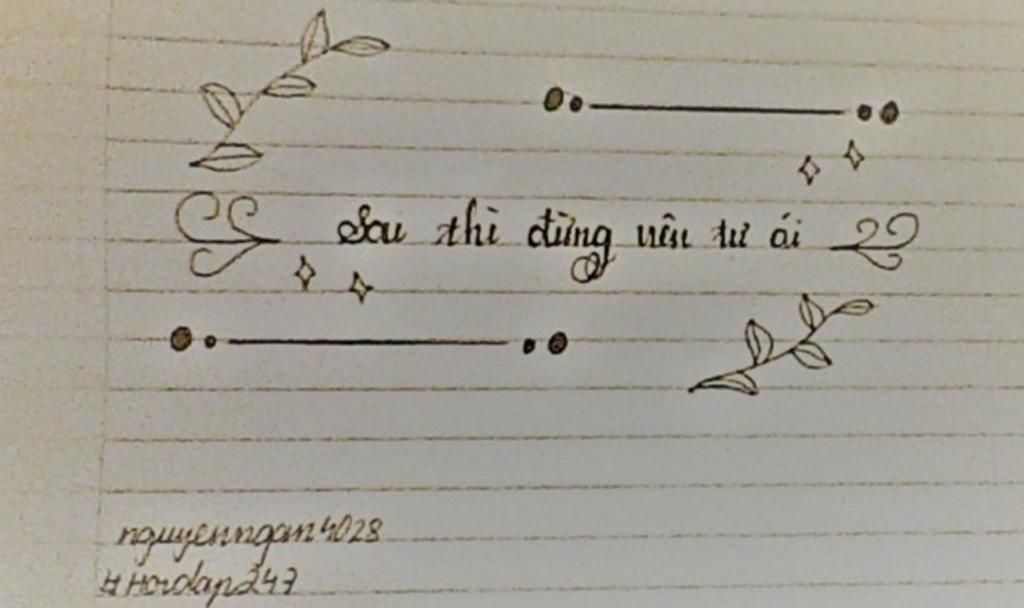 Sau thì đừng nên tự ái
nguyenngan4028
#Hoidap247